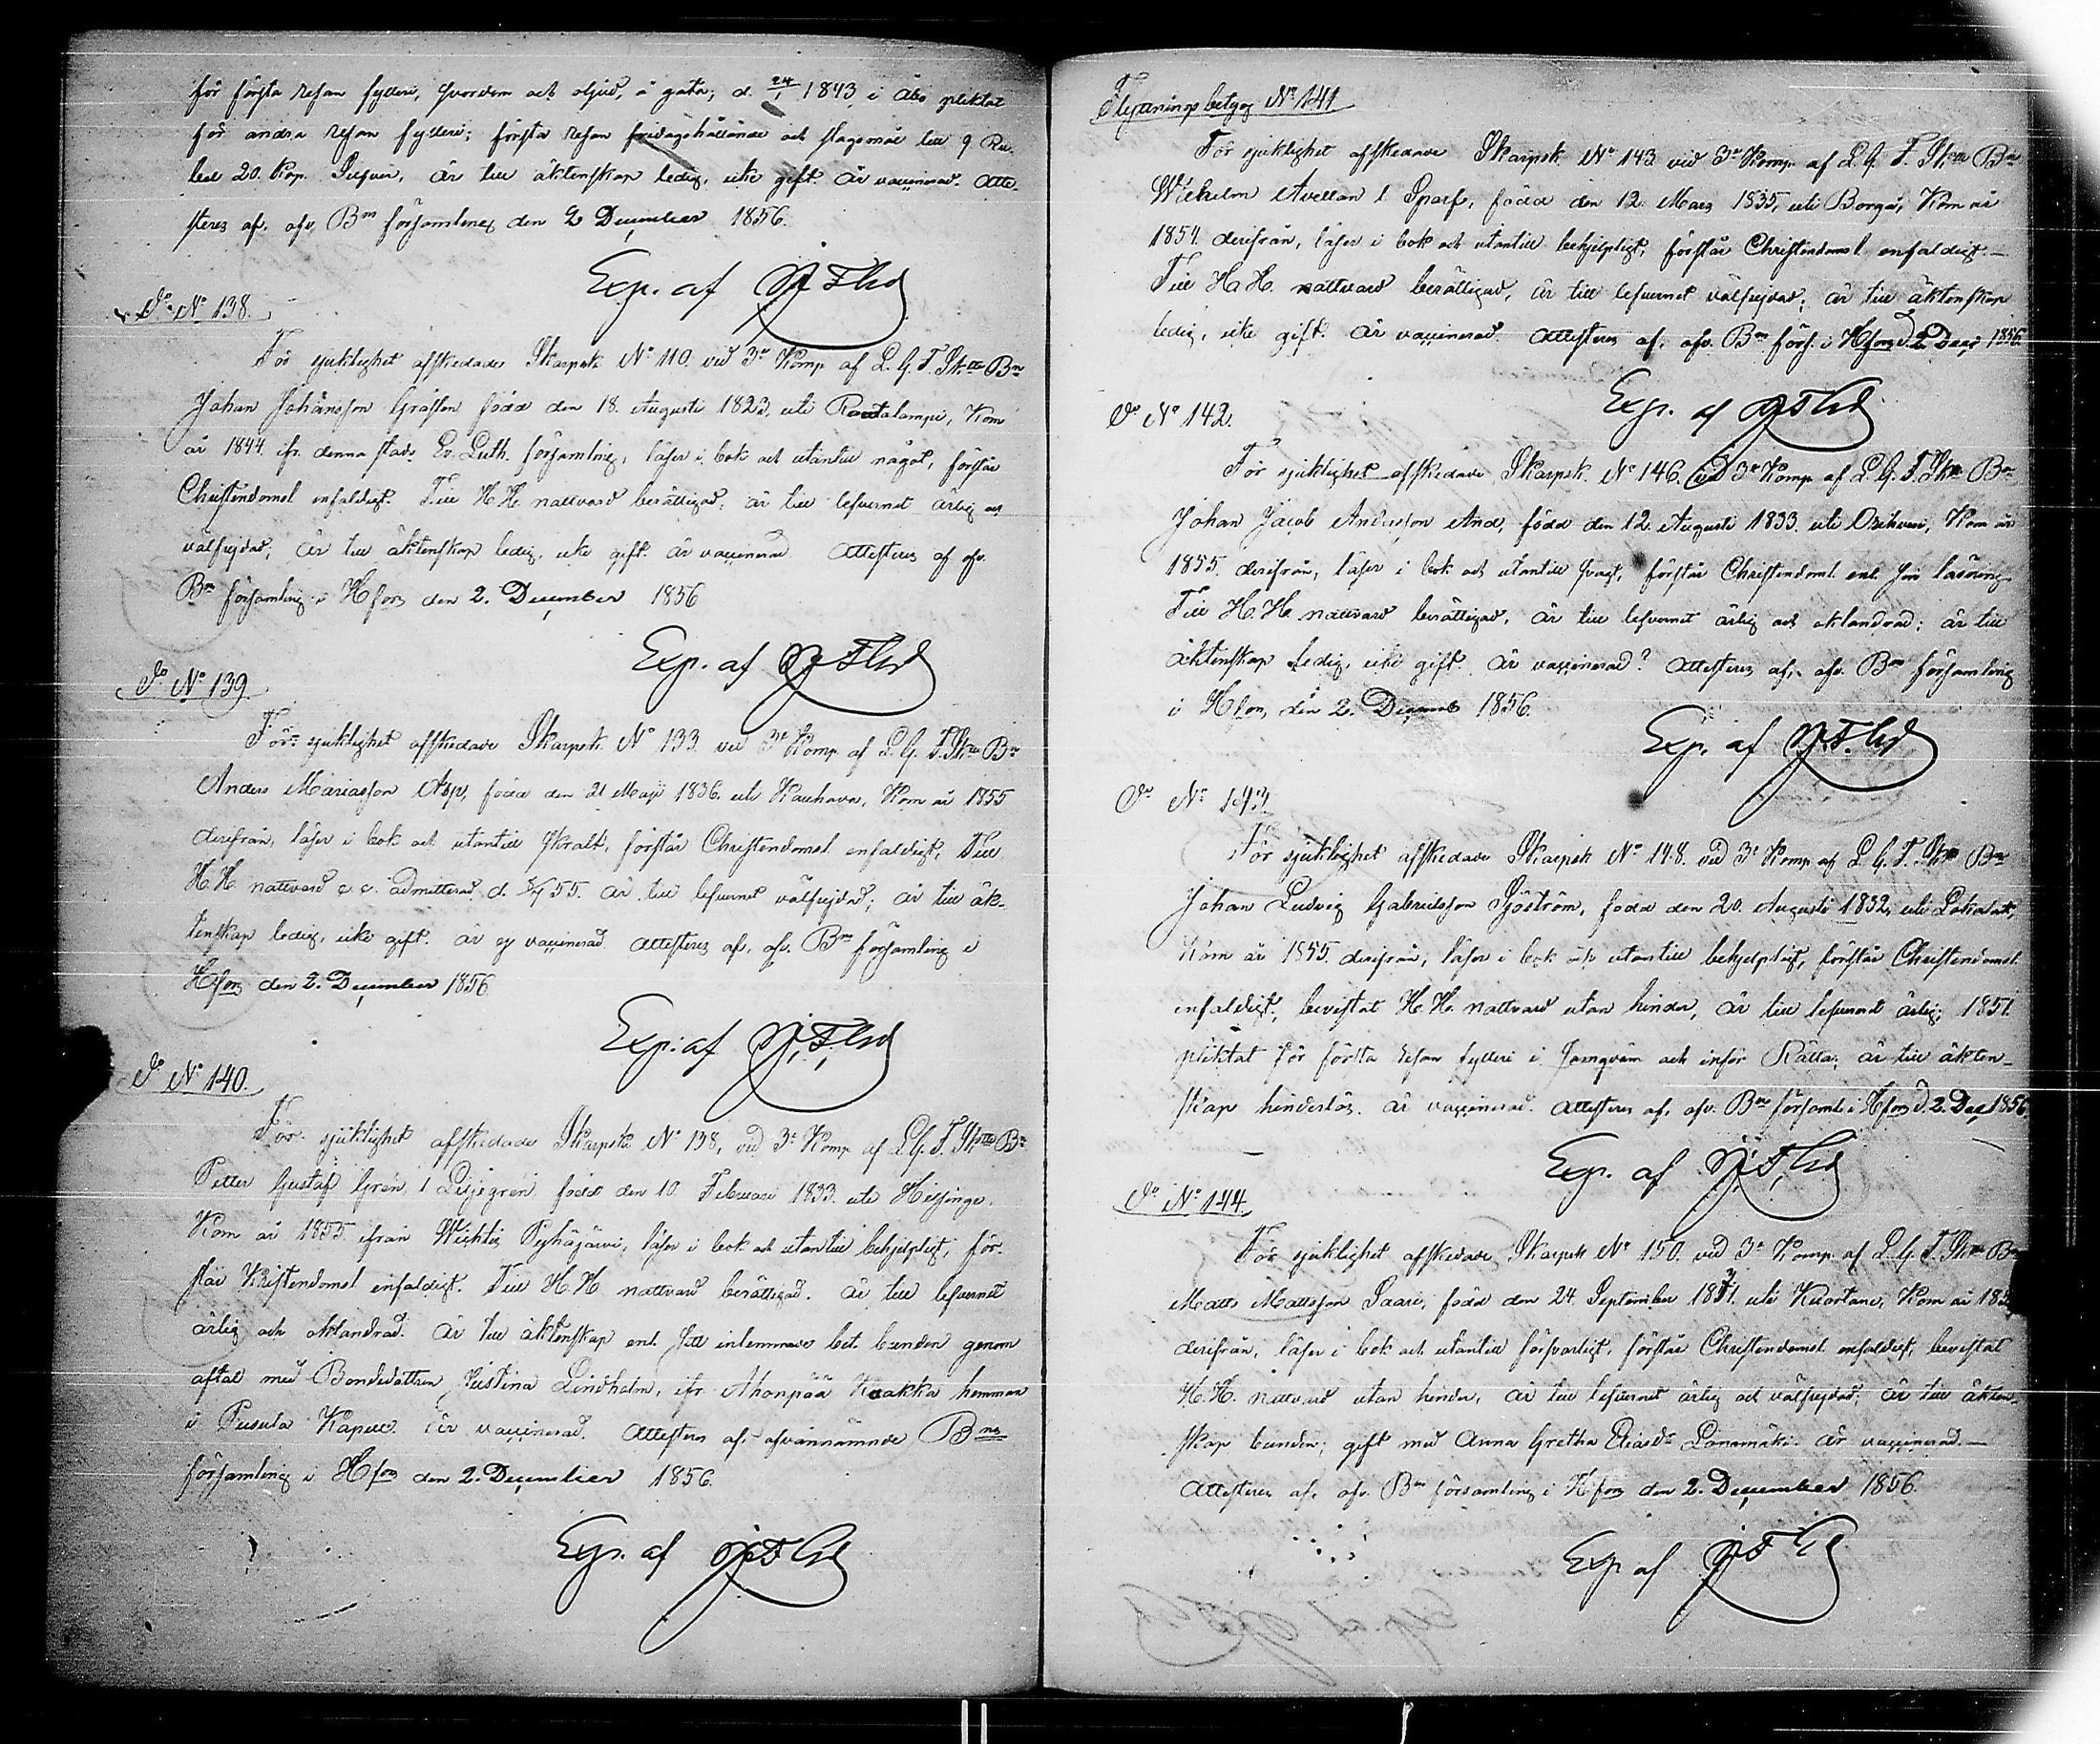 för första resan fylleri, svordom och oljud, å gata; d. 24/1 1843 i Åbo pliktat
för andra resan fylleri; första resan och slagsmål till 9 Ru-
bel 20. Kop. Silfver, är till äktenskap ledig, icke gift. är vaccinerad. Atte-
steras af, ofv. Bns församling den 2 December 1856.
Exp. af
Do No 138.
För sjuklighet afskedade Skarpsk. No 110. vid 3e Komp. af L. G. F. Sk. Bn
Johan Johansson Gråsten född den 18. Augusti 1823. uti Rautalampi, Kom
år 1844. ifr. denna stads Ev. Luth. församling, läser i bok och utantill något, förstår
Christendomsl. enfaldigt. Till H. H. nattvard berättigad: är till lefvernet ärlig och
välfrejdad, är till äktenskap ledig, icke gift. är vaccinerad. Attesteras af ofv.
Bns församling i Hfors den 2. December 1856
Exp. af
Do No 139.
För sjuklighet afskedade Skarpsk. No 133. vid 3e Komp. af L. G. F. Sk. Bn
Anders Mariasson Asp, född den 21 Maji 1836. uti Kauhava, Kom år 1855
derifrån, läser i bok och utantill svalt, förstår Christendomsl. enfaldigt. Till
H. H. nattvard admitterad d. 55. är till lefvernet välfrejdad; är till äk-
tenskap ledig, icke gift. är ej vaccinerad. Attesteras af, ofv. Bns församling i
Hfors den 2. December 1856.
Exp. af
Do No 140.
För sjuklighet afskedade Skarpsk. No 138, vid 3e Komp. af L. G. F. Sk. Bn
Petter Gustaf Grén l Liljegren född den 10. Februari 1833. uti Helsinge.
Kom år 1855. ifrån Wichtis Pyhäjärvi, läser i bok och utantill behjelpligt, för-
står Kristendomsl. enfaldigt. Till H. H. nattvard berättigad. är till lefvernet
ärlig och oklandrad. är till äktenskap enl. sitt inlemnade bet. bunden genom
aftal med Bondedottren Justina Lindholm, ifr. Ahonpää hemman
i Pusula Kapell. är vaccinerad. Attesteras af, ofvannämnde Bns
församling i Hfors den 2. December 1856.
Exp. af
Flyttningsbetyg No 141
För sjuklighet afskedade Skarpsk. No 143 vid 3e Komp. af L. G. F. Sk. Bn
Wilhelm Avellan l Sparf, född den 12. Mars 1835, uti Borgå, Kom år
1854. derifrån, läser i bok och utantill behjelpligt, förstår Christendomsl. enfaldigt.—
Till H. H. nattvard berättigad, är till lefvernet välfrejdad; är till äktenskap
ledig, icke gift. är vaccinerad. Attesteras af, ofv. Bns förs. i Hfors d. 2. Dec. 1856.
Exp. af
Do No 142.
För sjuklighet afskedade Skarpsk. No 146. vid 3e Komp. af L. G. F. Sk. Bn
Johan Jacob Andersson And, född den 12. Augusti 1833. uti Orihvesi, Kom år
1855. derifrån, läser i bok och utantill svagt, förstår Christendomsl. enl. sin läsning.
Till H. H. nattvard berättigad, är till lefvernet ärlig och oklandrad: är till
äktenskap ledig, icke gift. är vaccinerad? Attesteras af, ofv. Bns församling
i Hfors, den 2. Decemb 1856.
Exp. af
Do No 143.
För sjuklighet afskedade Skarpsk. No 148. vid 3e Komp. af L. G. F. Sk. Bn
Johan Ludvig Gabrielsson Sjöström, född den 20. Augusti 1832, uti Lokalaks,
Kom år 1855. derifrån, läser i bok och utantill behjelpligt, förstår Christendomsl.
enfaldigt, bevistat H. H. nattvard utan hinder, är till lefvernet ärlig; 1851.
pliktat för första resan fylleri i och inför Rätta; är till äkten-
skap hinderslös. är vaccinerad. Attesteras af, ofv. Bns församl. i Hfors d. 2. Dec 1856
Exp. af
Do No 144.
För sjuklighet afskedade Skarpsk No 150. vid 3e Komp. af L. G. F. Sk. Bn
Matts Mattsson Saari, född den 24. September uti Kuortane, Kom år
derifrån, läser i bok och utantill försvarligt, förstår Christendomsl. enfaldigt, bevistat
H. H. nattvard utan hinder, är till lefvernet ärlig och välfrejdad; är till äkten-
skap bunden; gift med Anna Gretha Eliasdr. är vaccinerad.—
Attesteras af, ofv. Bns församling i Hfors den 2. December 1856.
Exp af